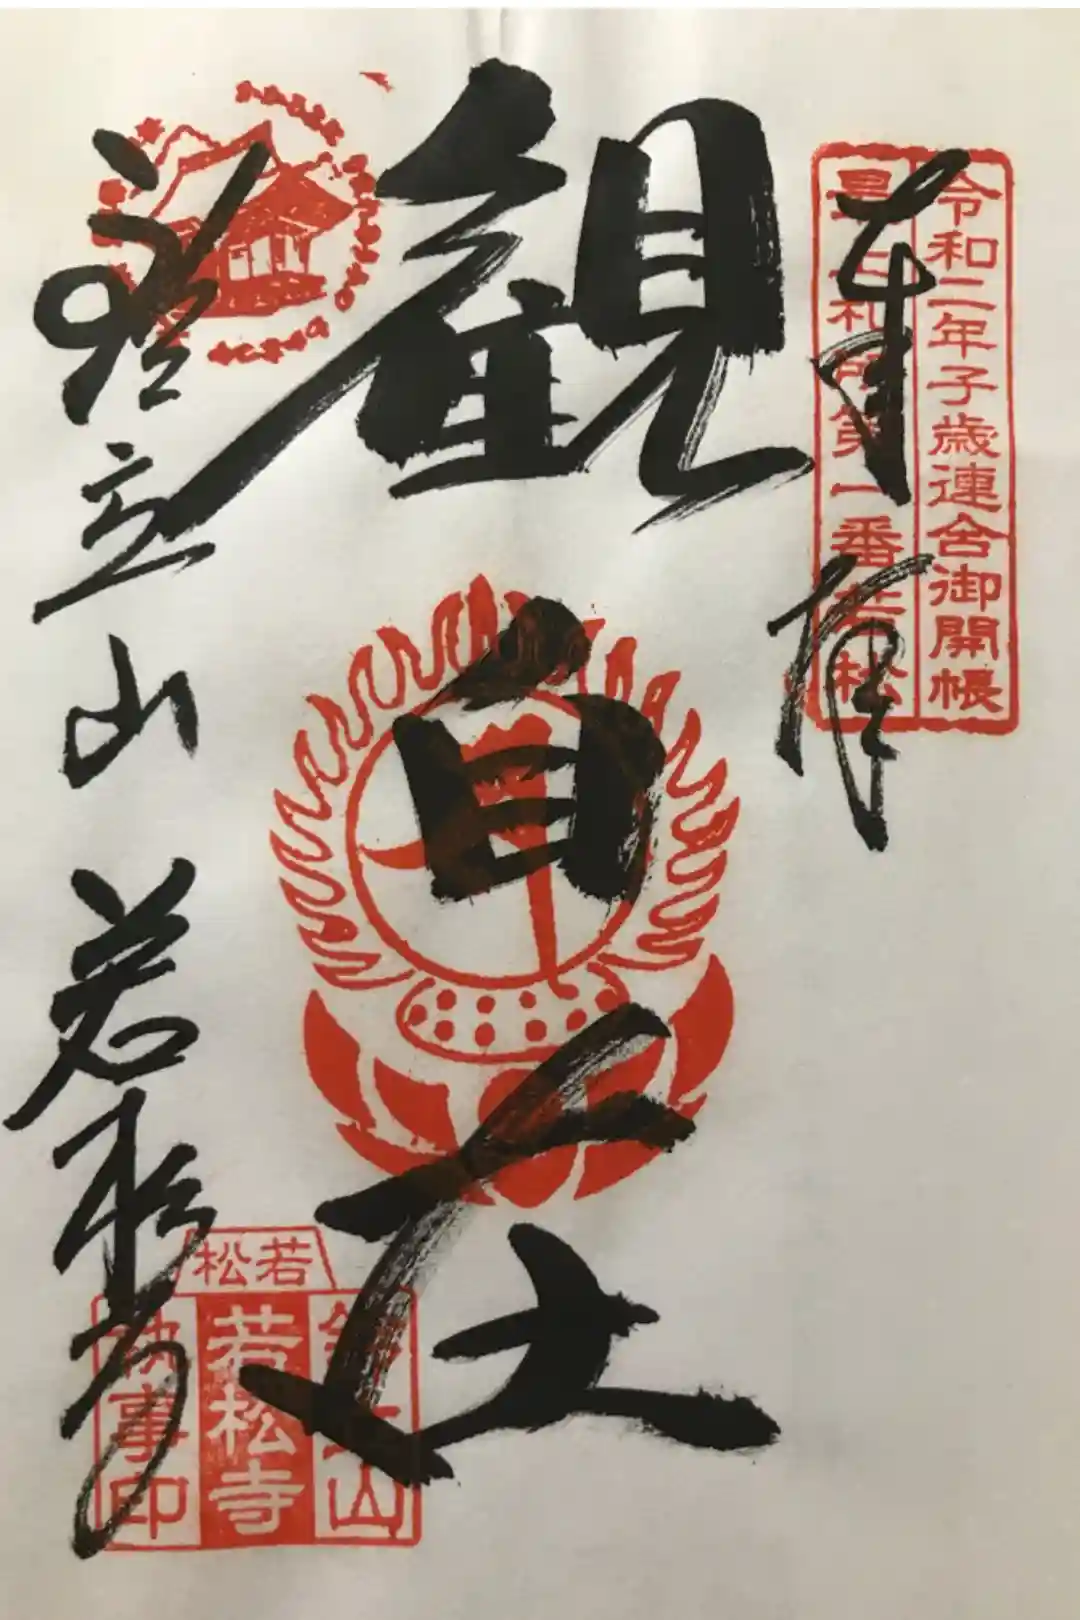 令和二年子歳連合御開帳
最上札所第一番若松
奉拝
観自在
鈴立山若松寺
若松
鈴立山
若松寺
執事印